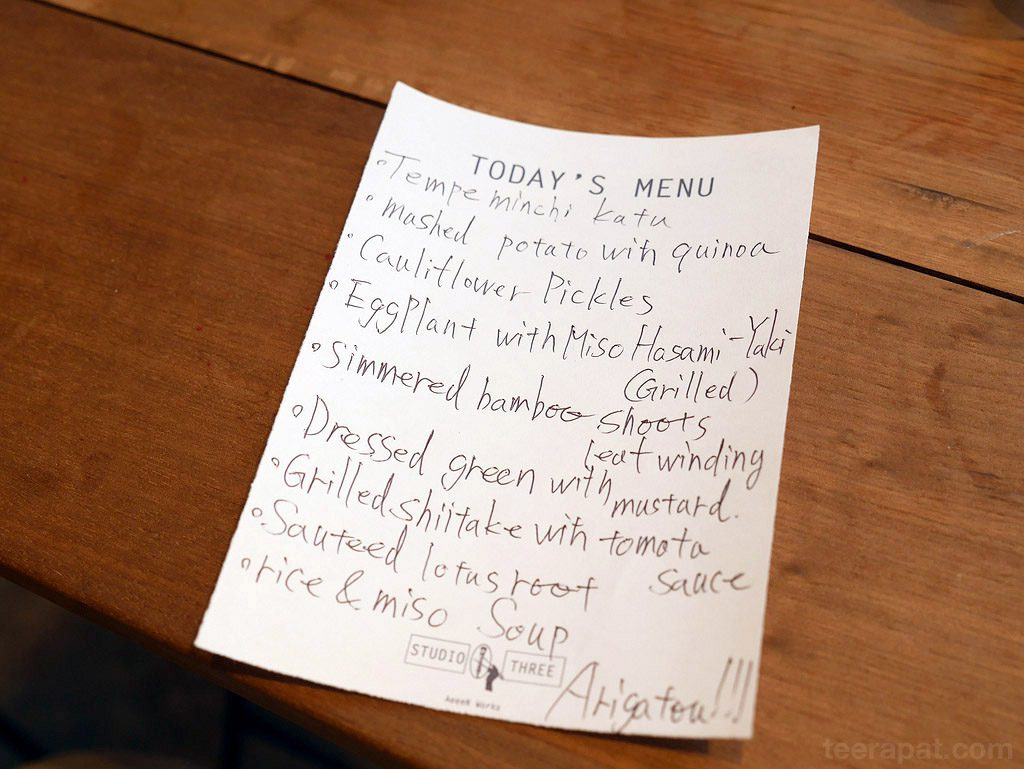 TODAY'S MENU
Tempe minchi katu
mashed potato with quinoa
Cauliflower Pickles
EggPlant with Miso Hasami-Yaki
(Grilled)
Simmered bamboo shoots
leaf winding
Dressed green with mustard.
Grilled shiitake with tomato
sauce
Sauteed lotus root
rice & miso Soup
STUDIO THREE
Works
Arigatou!!!
teerapat.com